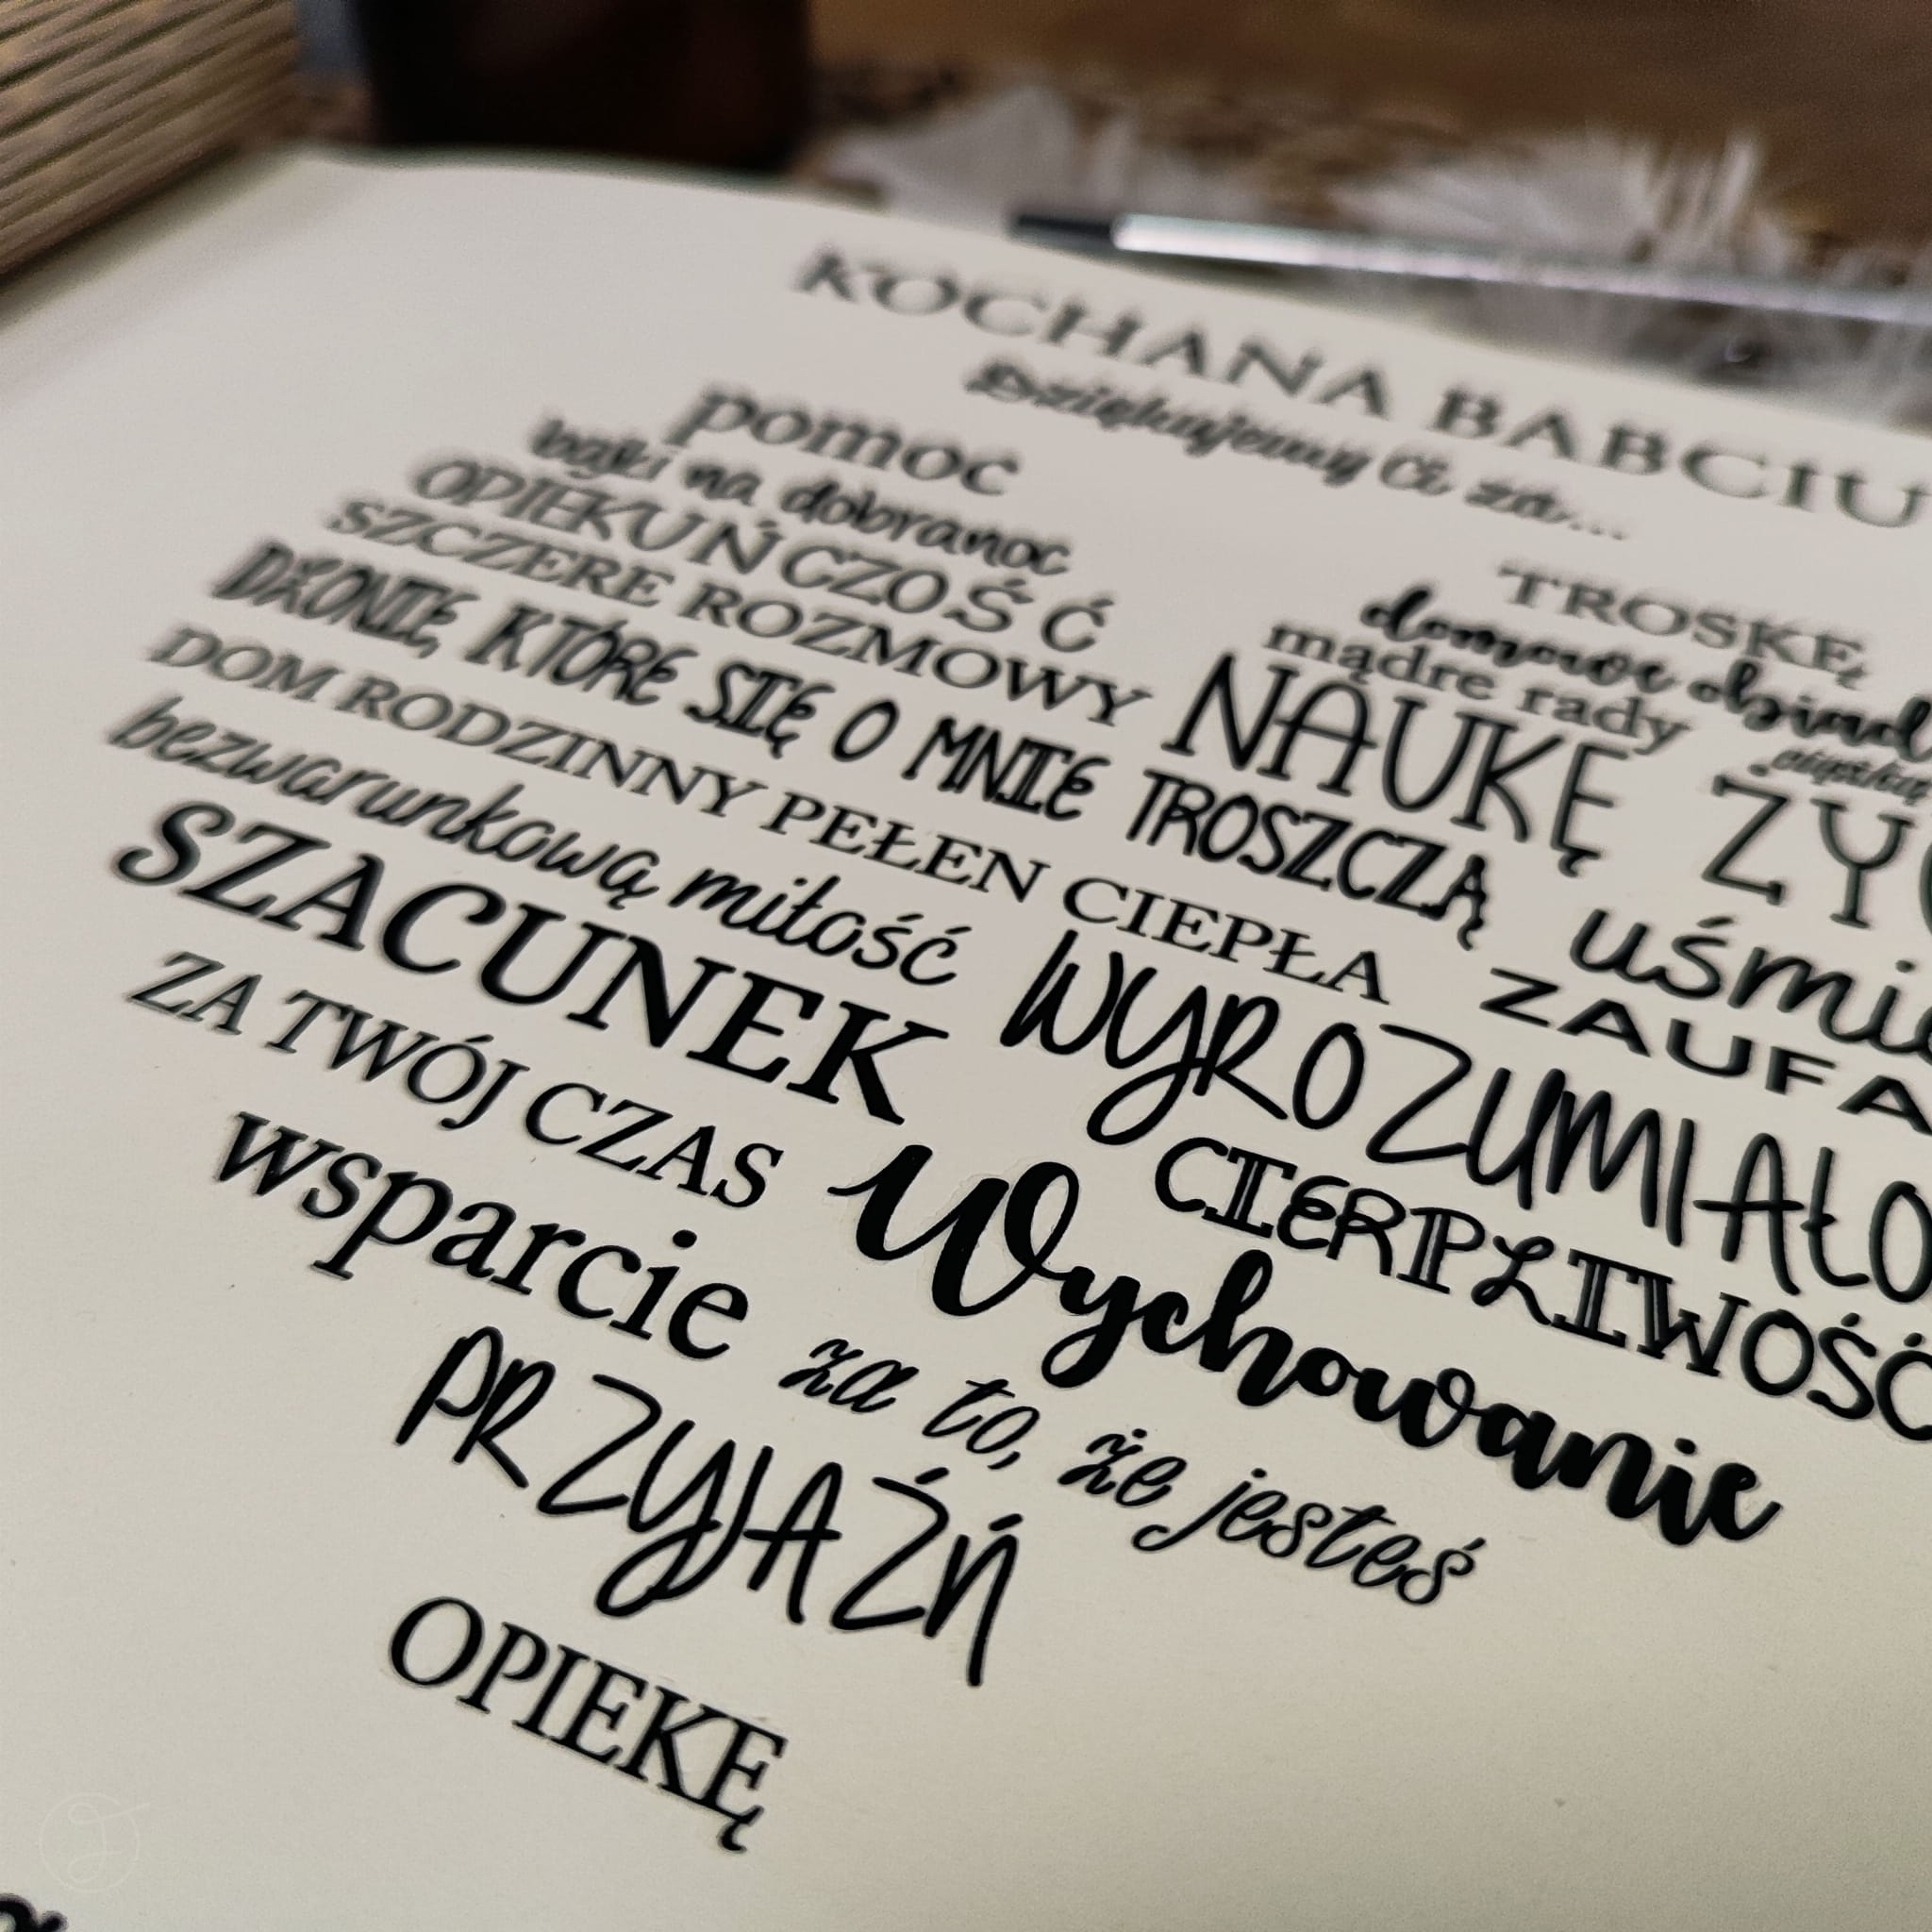 KOCHANA BABCIU
Dziękujemy Ci za...
pomoc
bajki na dobranoc
OPIEKUŃCZOŚĆ
SZCZERE ROZMOWY
DŁONIE, KTÓRE SIĘ O MNIE TROSZCZĄ
DOM RODZINNY PEŁEN CIEPŁA
bezwarunkową miłość
SZACUNEK
ZA TWÓJ CZAS
wsparcie
PRZYJAŹŃ
OPIEKĘ
TROSKĘ
domowe obiad
mądre rady
NAUKĘ ŻYC
uśmie
ZAUFA
WYROZUMIAŁO
CIERPLIWOŚĆ
Wychowanie
za to, że jesteś